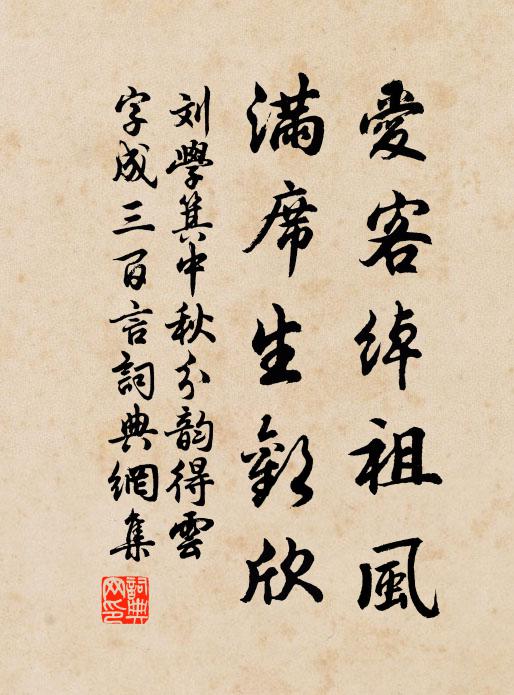 愛客綽祖風
滿席生歡欣
刘學箕中秋分韵得雲
字成三百言詞典網集
詞典網印